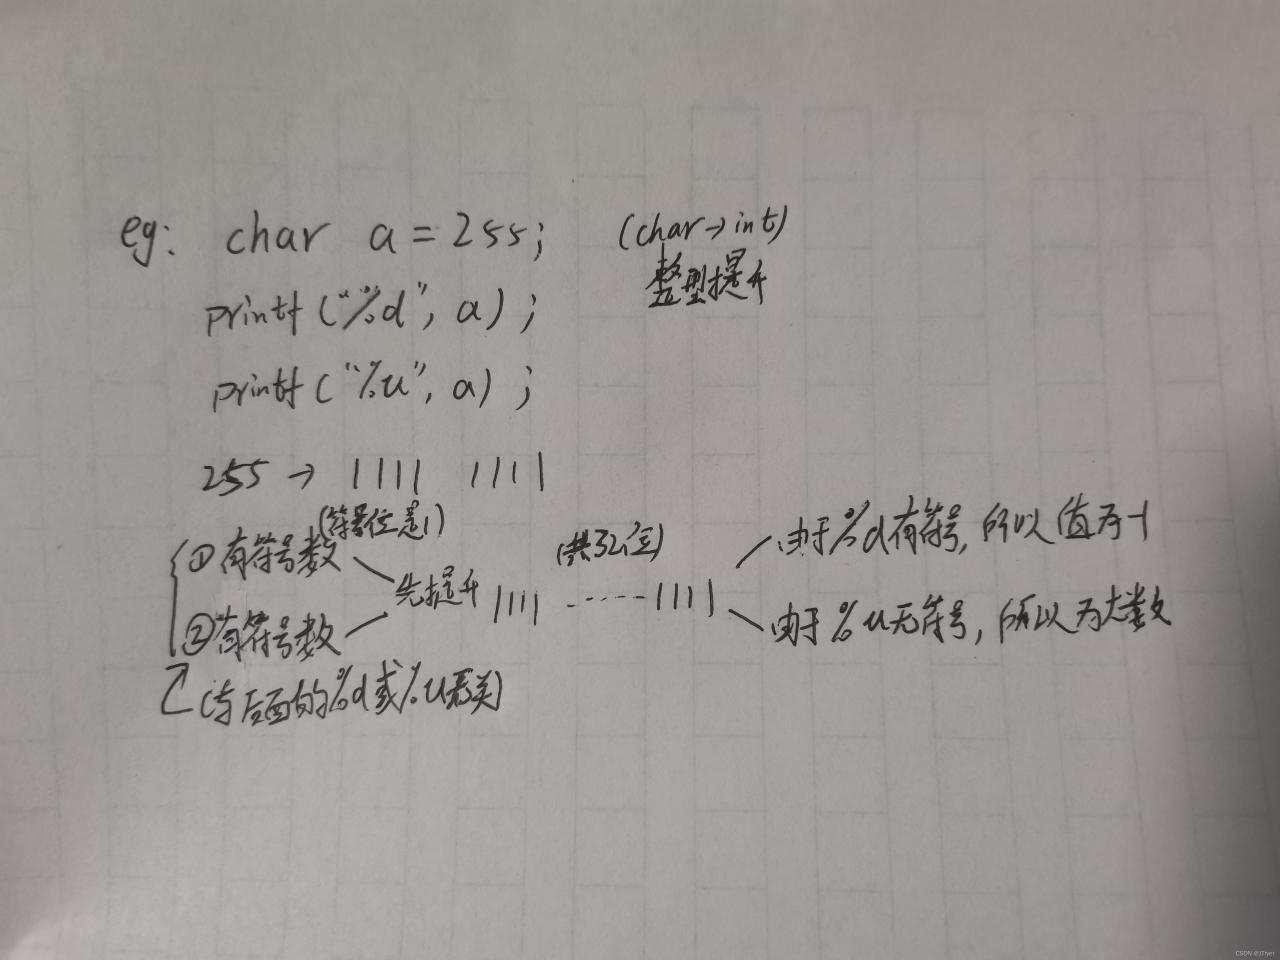 eg: char a = 255; (char→int)
整型提升
printf ("%d", a) ;
printf ("%u", a) ;
255 → 1111 1111
(符号位是1)
①有符号数
②有符号数
先提升 1111 ------ 1111
(共32位)
由于%d有符号, 所以值为-1
由于%u无符号, 所以为大数
(与后面的%d或%u无关)
CSDN @JTryer